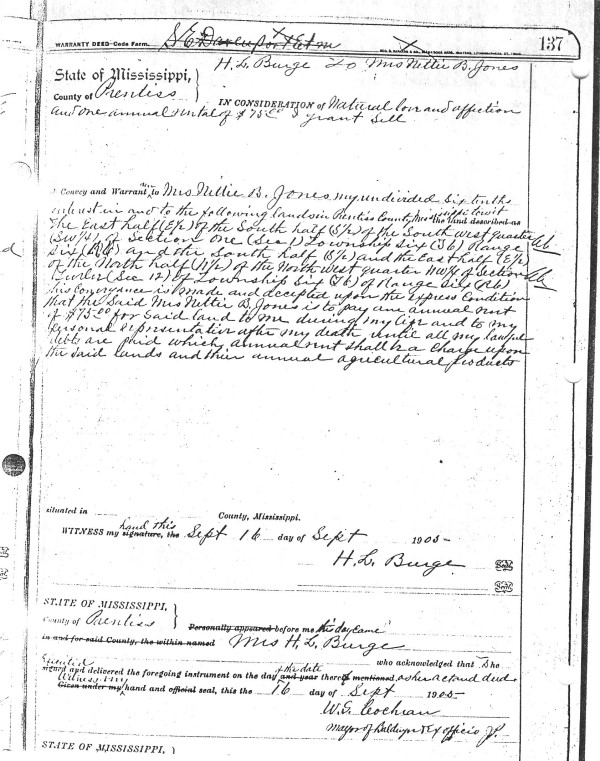 WARRANTY DEED—Code Form.
S E Davenport Et m
137
State of Mississippi,
County of Prentiss
H. L. Burge To Mrs Nettie B. Jones
IN CONSIDERATION of Natural love and affection
and one annual rental of $75.00 I grant Sell
Convey and Warrant to Mrs Nettie B. Jones, my undivided Six tenths
interest in and to the following lands in Prentiss County, Mississippi towit the land described as
The East half (E/2) of the South half (S/2) of the South West quarter
(SW/4) of Section One (Sec 1) Township Six (T6) Range
Six (R6) and the South half (S/2) and the East half (E/2)
of the North half (N/2) of the North West quarter NW/4 of Section
Twelve (Sec 12) of Township Six (T6) of Range Six (R6)
This Conveyance is made and accepted upon the Express Condition
that the Said Mrs Nettie B. Jones is to pay an annual rent
of $75.00 for Said land to me during my life and to my
personal representative after my death until all my lawful
debts are paid which annual rent shall be a Charge upon
the said lands and their annual agricultural products
situated in County, Mississippi.
WITNESS my signature, the hand this Sept 16 day of Sept 1905
H. L. Burge
STATE OF MISSISSIPPI,
County of Prentiss
Personally appeared before me this day came
in and for said County, the within named Mrs H. L. Burge
who acknowledged that She
Executed
signed and delivered the foregoing instrument on the day and year of the date thereof mentioned, as her act and deed
Witness my
Given under my hand and official seal, this the 16 day of Sept 1905
W. E. Cochran
Mayor of Baldwyn & Ex officio J.P.
STATE OF MISSISSIPPI,